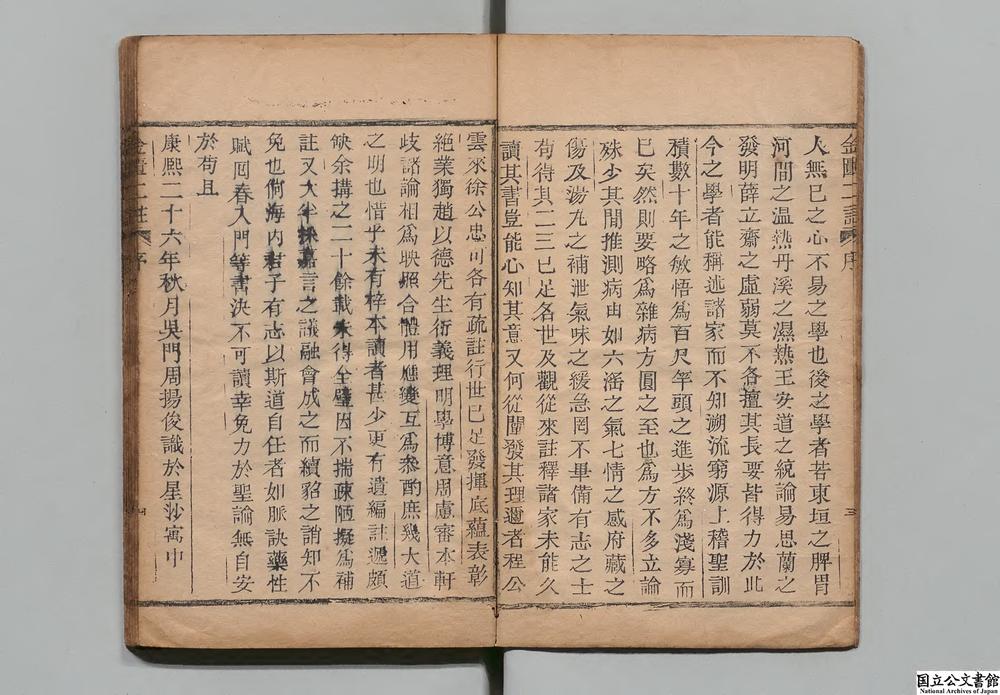 金匱二註 序
人無已之心不易之學也後之學者若東垣之脾胃
河間之温熱丹溪之濕熱王安道之統論易思蘭之
發明薛立齋之虛弱莫不各擅其長要皆得力於此
今之學者能稱述諸家而不知溯流窮源上稽聖訓
積數十年之敏悟爲百尺竿頭之進步終爲淺寡而
已矣然則要略爲雜病方圓之至也爲方不多立論
殊少其間推測病由如六滛之氣七情之感府藏之
傷及湯丸之補泄氣味之緩急罔不畢備有志之士
苟得其二三已足名世及觀從來註釋諸家未能久
讀其書豈能心知其意又何從闡發其理邇者程公
三
雲來徐公忠可各有疏註行世已足發揮底蘊表彰
絶業獨趙以德先生衍義理明學博意周慮審本軒
歧諸論相爲映照合體用應變互爲叅酌庶幾大道
之明也惜乎未有梓本讀者甚少更有遺編註遞頗
缺余搆之二十餘載未得全璧因不揣疎陋擬爲補
註又大半採嘉言之議融會成之而續貂之誚知不
免也倘海内君子有志以斯道自任者如脈訣藥性
賦囘春入門等書決不可讀幸免力於聖論無自安
於苟且
康熙二十六年秋月吳門周揚俊識於星沙寓中
金匱二註 序
四
国立公文書館
National Archives of Japan